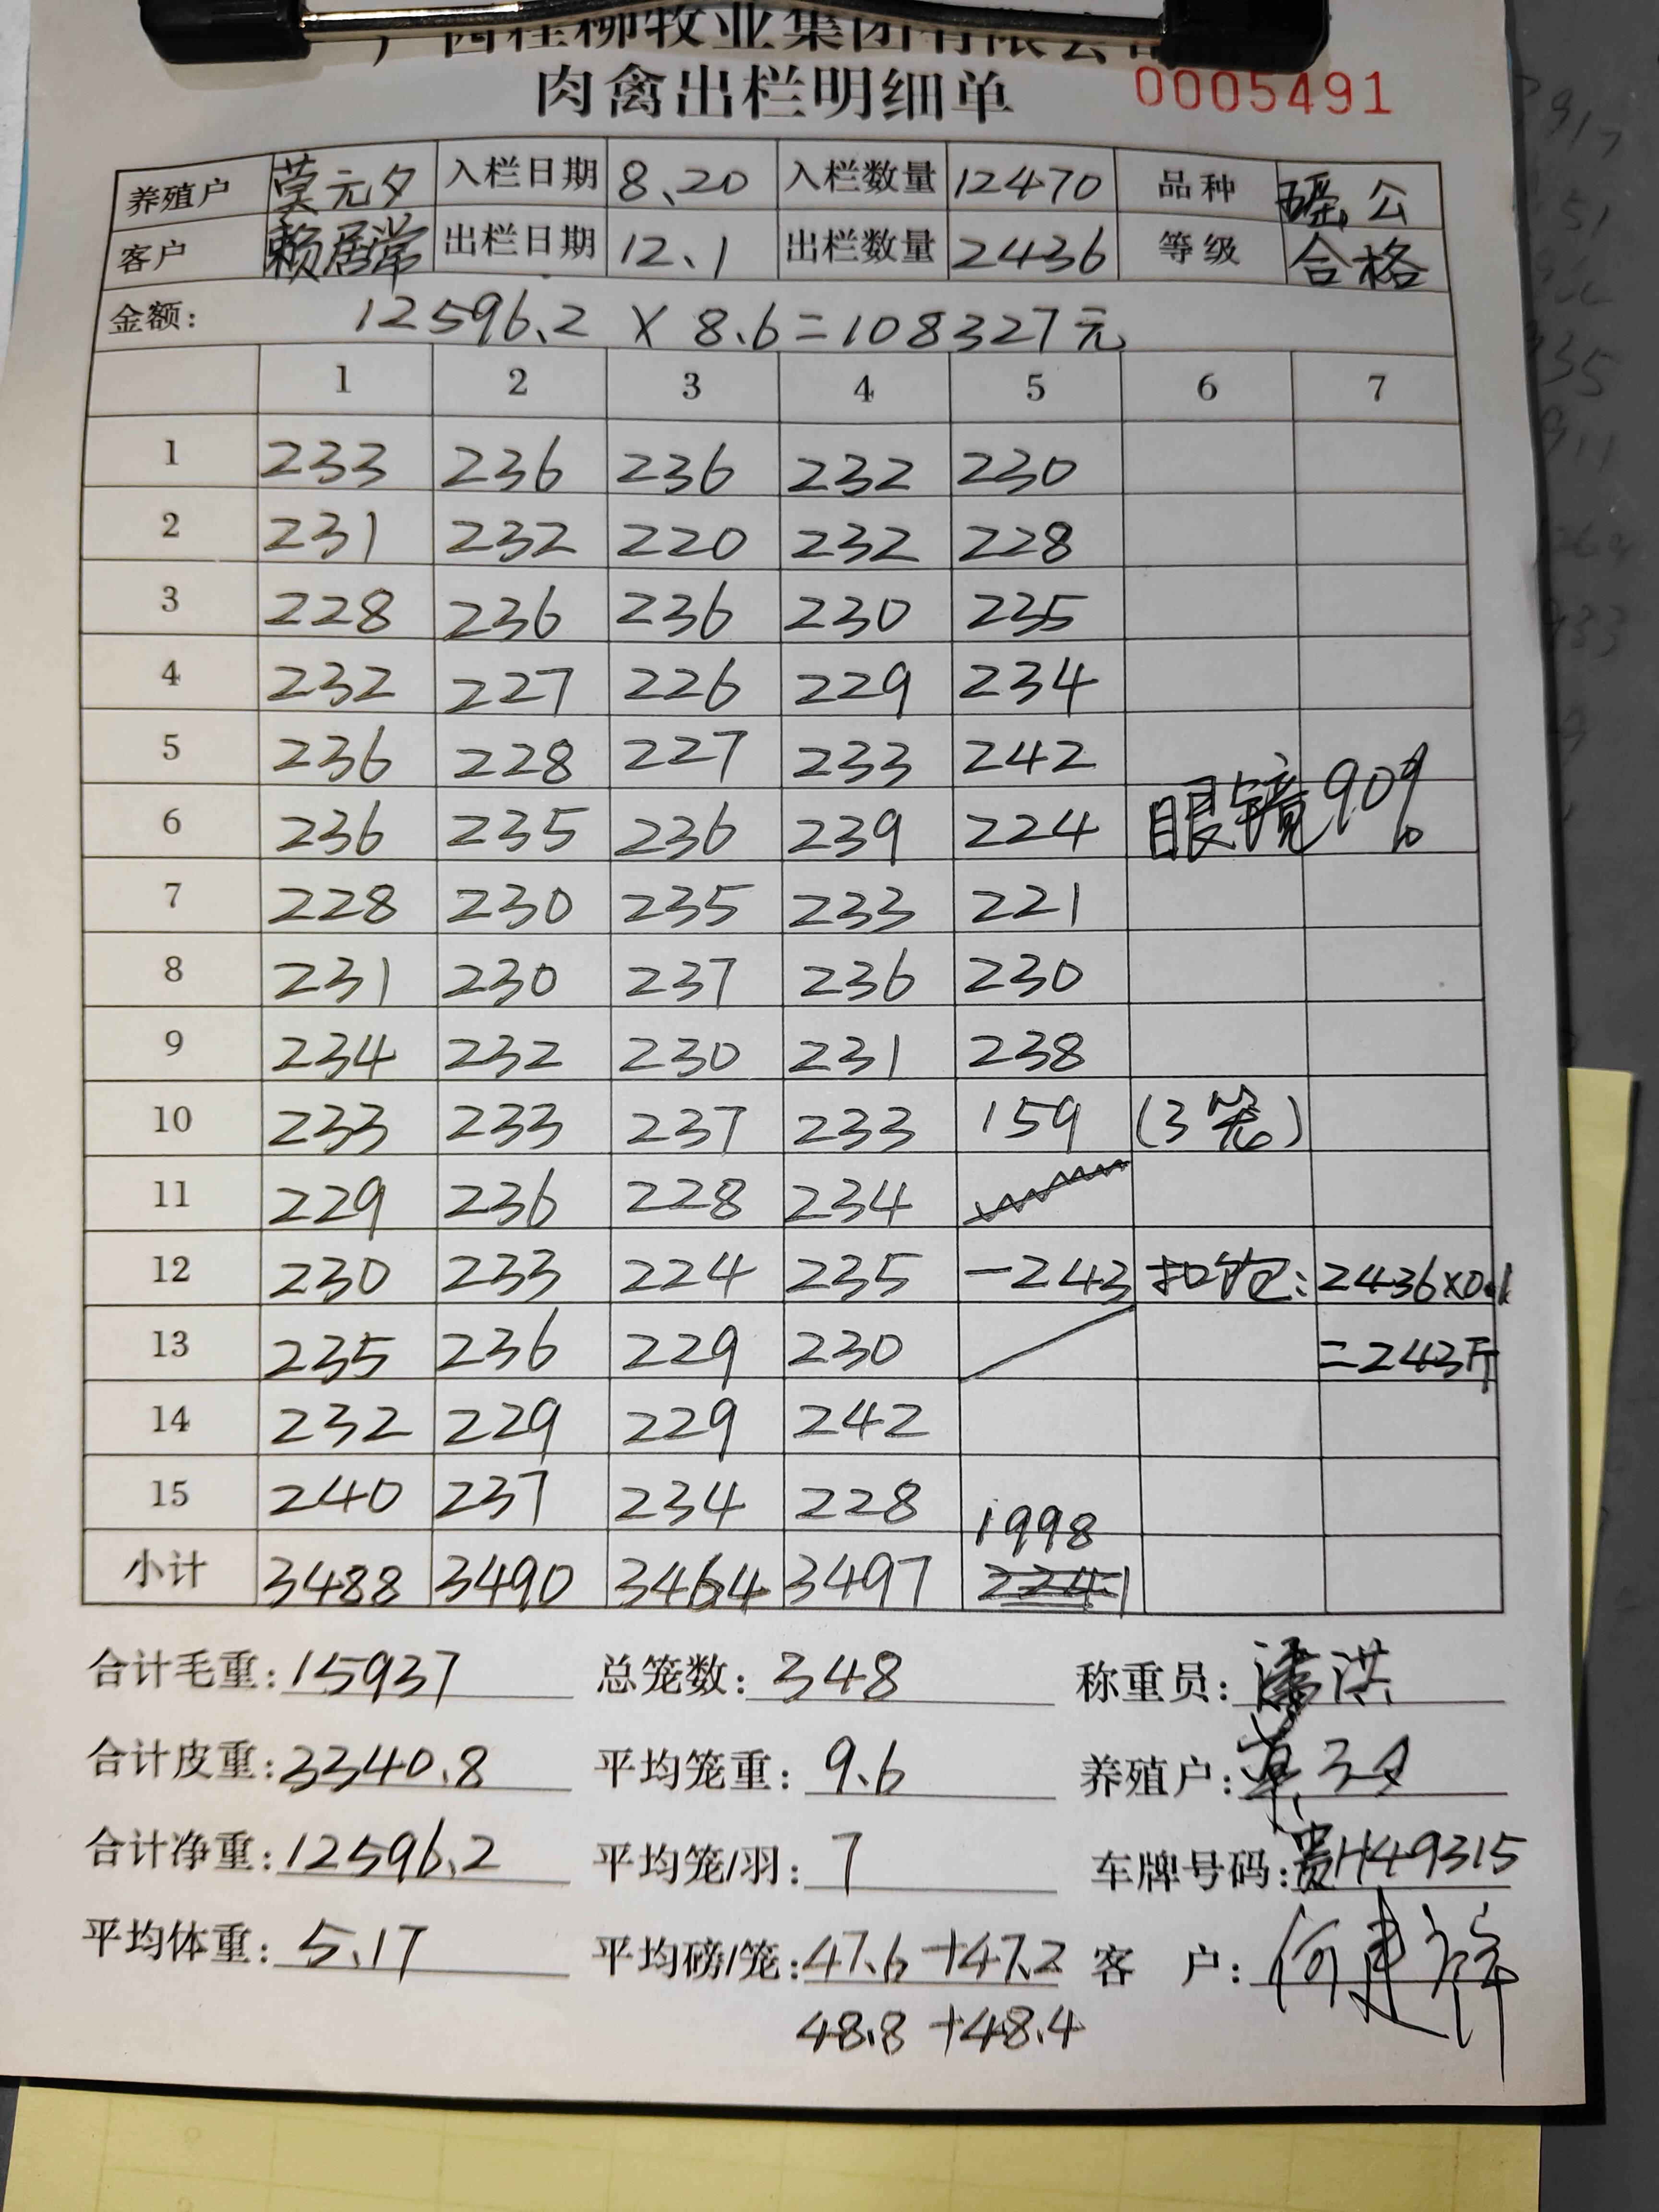 广西桂柳牧业集团有限公司
肉禽出栏明细单 0005491
养殖户 莫元夕 入栏日期 8、20 入栏数量 12470 品种 瑶公
客户 赖居常 出栏日期 12、1 出栏数量 2436 等级 合格
金额: 12596.2 × 8.6=108327元
1 2 3 4 5 6 7
1 233 236 236 232 230
2 231 232 220 232 228
3 228 236 236 230 235
4 232 227 226 229 234
5 236 228 227 233 242
6 236 235 236 239 224 眼镜90%
7 228 230 235 233 221
8 231 230 237 236 230
9 234 232 230 231 238
10 233 233 237 233 159 (3笼)
11 229 236 228 234
12 230 233 224 235 -243 扣饱:2436×0.1
13 235 236 229 230 =243斤
14 232 229 229 242
15 240 237 234 228
1998
小计 3488 3490 3464 3497 2241
合计毛重:15937 总笼数:348 称重员:潘洪
合计皮重:3340.8 平均笼重:9.6 养殖户:莫元夕
合计净重:12596.2 平均笼/羽:7 车牌号码:贵H49315
平均体重:5.17 平均磅/笼:47.6+47.2 客户:何建
48.8+48.4